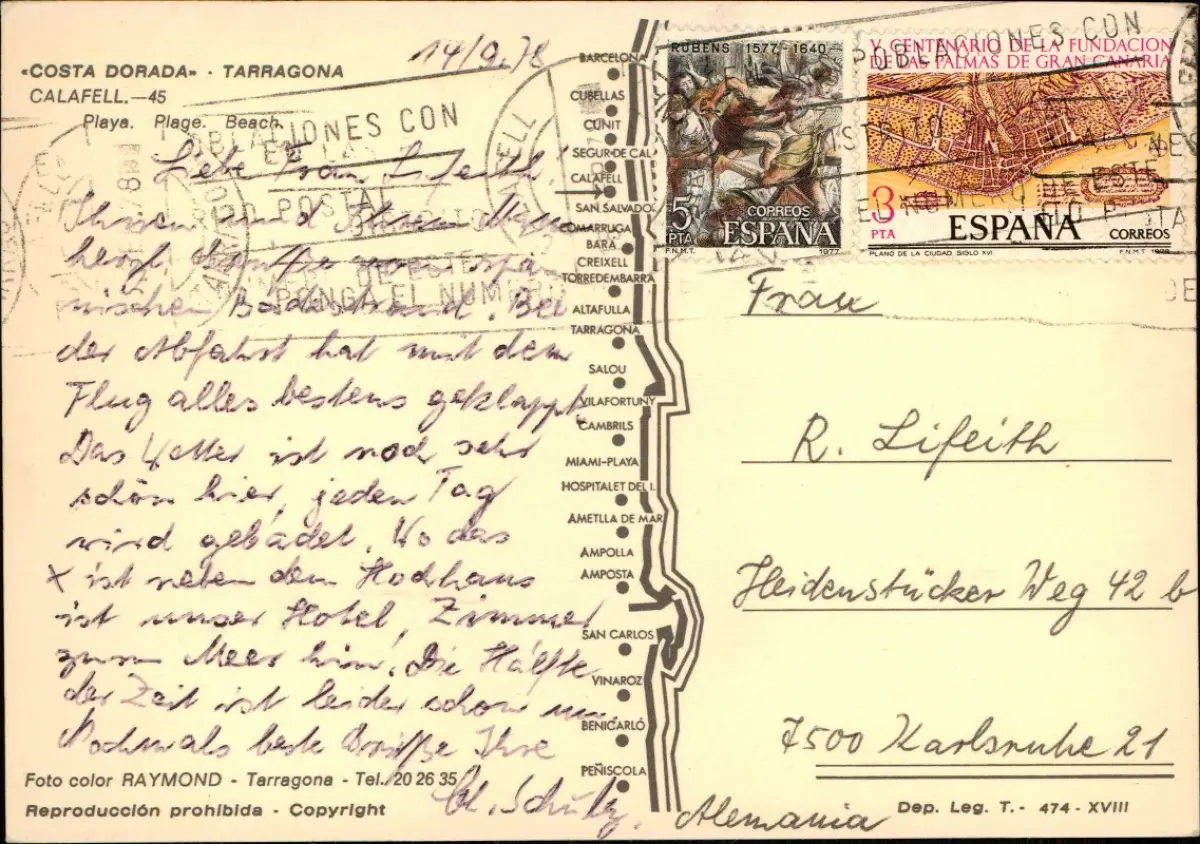 14/9.78
«COSTA DORADA» · TARRAGONA
CALAFELL.—45
Playa. Plage. Beach.
Liebe Frau Lifeith!
Ihnen und Ihrem Mann
herzl. Grüße vom spa-
nischen Badestrand. Bei
der Abfahrt hat mit dem
Flug alles bestens geklappt.
Das Wetter ist noch sehr
schön hier, jeden Tag
wird gebadet. Wo das
x ist neben dem Hochhaus
ist unser Hotel, Zimmer
zum Meer hin! Die Hälfte
der Zeit ist leider schon um.
Nochmals beste Grüße Ihre
Schulz.
Foto color RAYMOND - Tarragona - Tel. 20 26 35
Reproducción prohibida - Copyright
BARCELONA
CUBELLAS
CUNIT
SEGUR DE CAL
CALAFELL
SAN SALVADO
COMARRUGA
BARÁ
CREIXELL
TORREDEMBARRA
ALTAFULLA
TARRAGONA
SALOU
VILAFORTUNY
CAMBRILS
MIAMI-PLAYA
HOSPITALET DEL I.
AMETLLA DE MAR
AMPOLLA
AMPOSTA
SAN CARLOS
VINAROZ
BENICARLÓ
PEÑISCOLA
RUBENS 1577-1640
5 PTA
CORREOS
ESPAÑA
F.N.M.T. 1977
V CENTENARIO DE LA FUNDACION
DE LAS PALMAS DE GRAN CANARIA
3 PTA
ESPAÑA CORREOS
PLANO DE LA CIUDAD SIGLO XVI F.N.M.T. 1978
POBLACIONES CON
DISTRITO POSTAL
PONGA EL NUMERO
Frau
R. Lifeith
Heidenstücker Weg 42 b
7500 Karlsruhe 21
Alemania
Dep. Leg. T. - 474 - XVIII